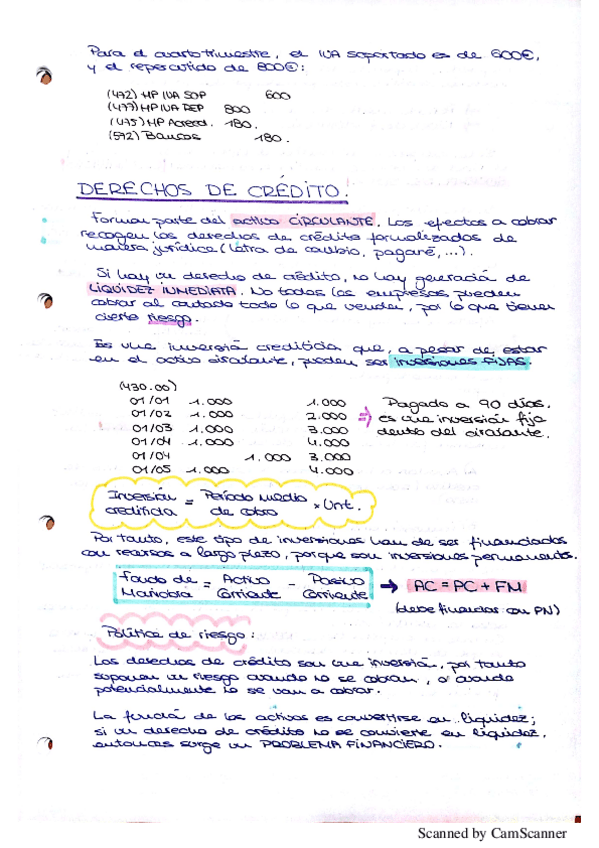 Para el cuarto trimestre, el IVA soportado es de 600€,
y el repercutido de 800€:
(472) HP IVA SOP 600
(477) HP IVA REP 800
(475) HP Acreed. 180.
(572) Bancos 180.
DERECHOS DE CRÉDITO.
Forman parte del activo CIRCULANTE. Los efectos a cobrar
recogen los derechos de crédito formalizados de
manera jurídica (letra de cambio, pagaré, ...).
Si hay un derecho de crédito, no hay generación de
LIQUIDEZ INMEDIATA. No todas las empresas pueden
cobrar al contado todo lo que venden, por lo que tienen
cierto riesgo.
Es una inversión crediticia que, a pesar de estar
en el activo circulante, pueden ser inversiones FIJAS.
(430.00)
01/01 1.000 1.000
01/02 1.000 2.000
01/03 1.000 3.000
01/04 1.000 4.000
01/04 1.000 3.000
01/05 1.000 4.000
⇒ Pagado a 90 días.
es una inversión fija
dentro del circulante.
Inversión crediticia = Período medio de cobro × Vnt.
Por tanto, este tipo de inversiones han de ser financiadas
con recursos a largo plazo, porque son inversiones permanentes.
Fondo de Maniobra = Activo Corriente - Pasivo Corriente → AC = PC + FM
(debe financiar con PN)
Política de riesgo:
Los derechos de crédito son una inversión, por tanto
suponen un riesgo cuando no se cobran, o cuando
potencialmente no se van a cobrar.
La función de los activos es convertirse en liquidez;
si un derecho de crédito no se convierte en liquidez,
entonces surge un PROBLEMA FINANCIERO.
Scanned by CamScanner